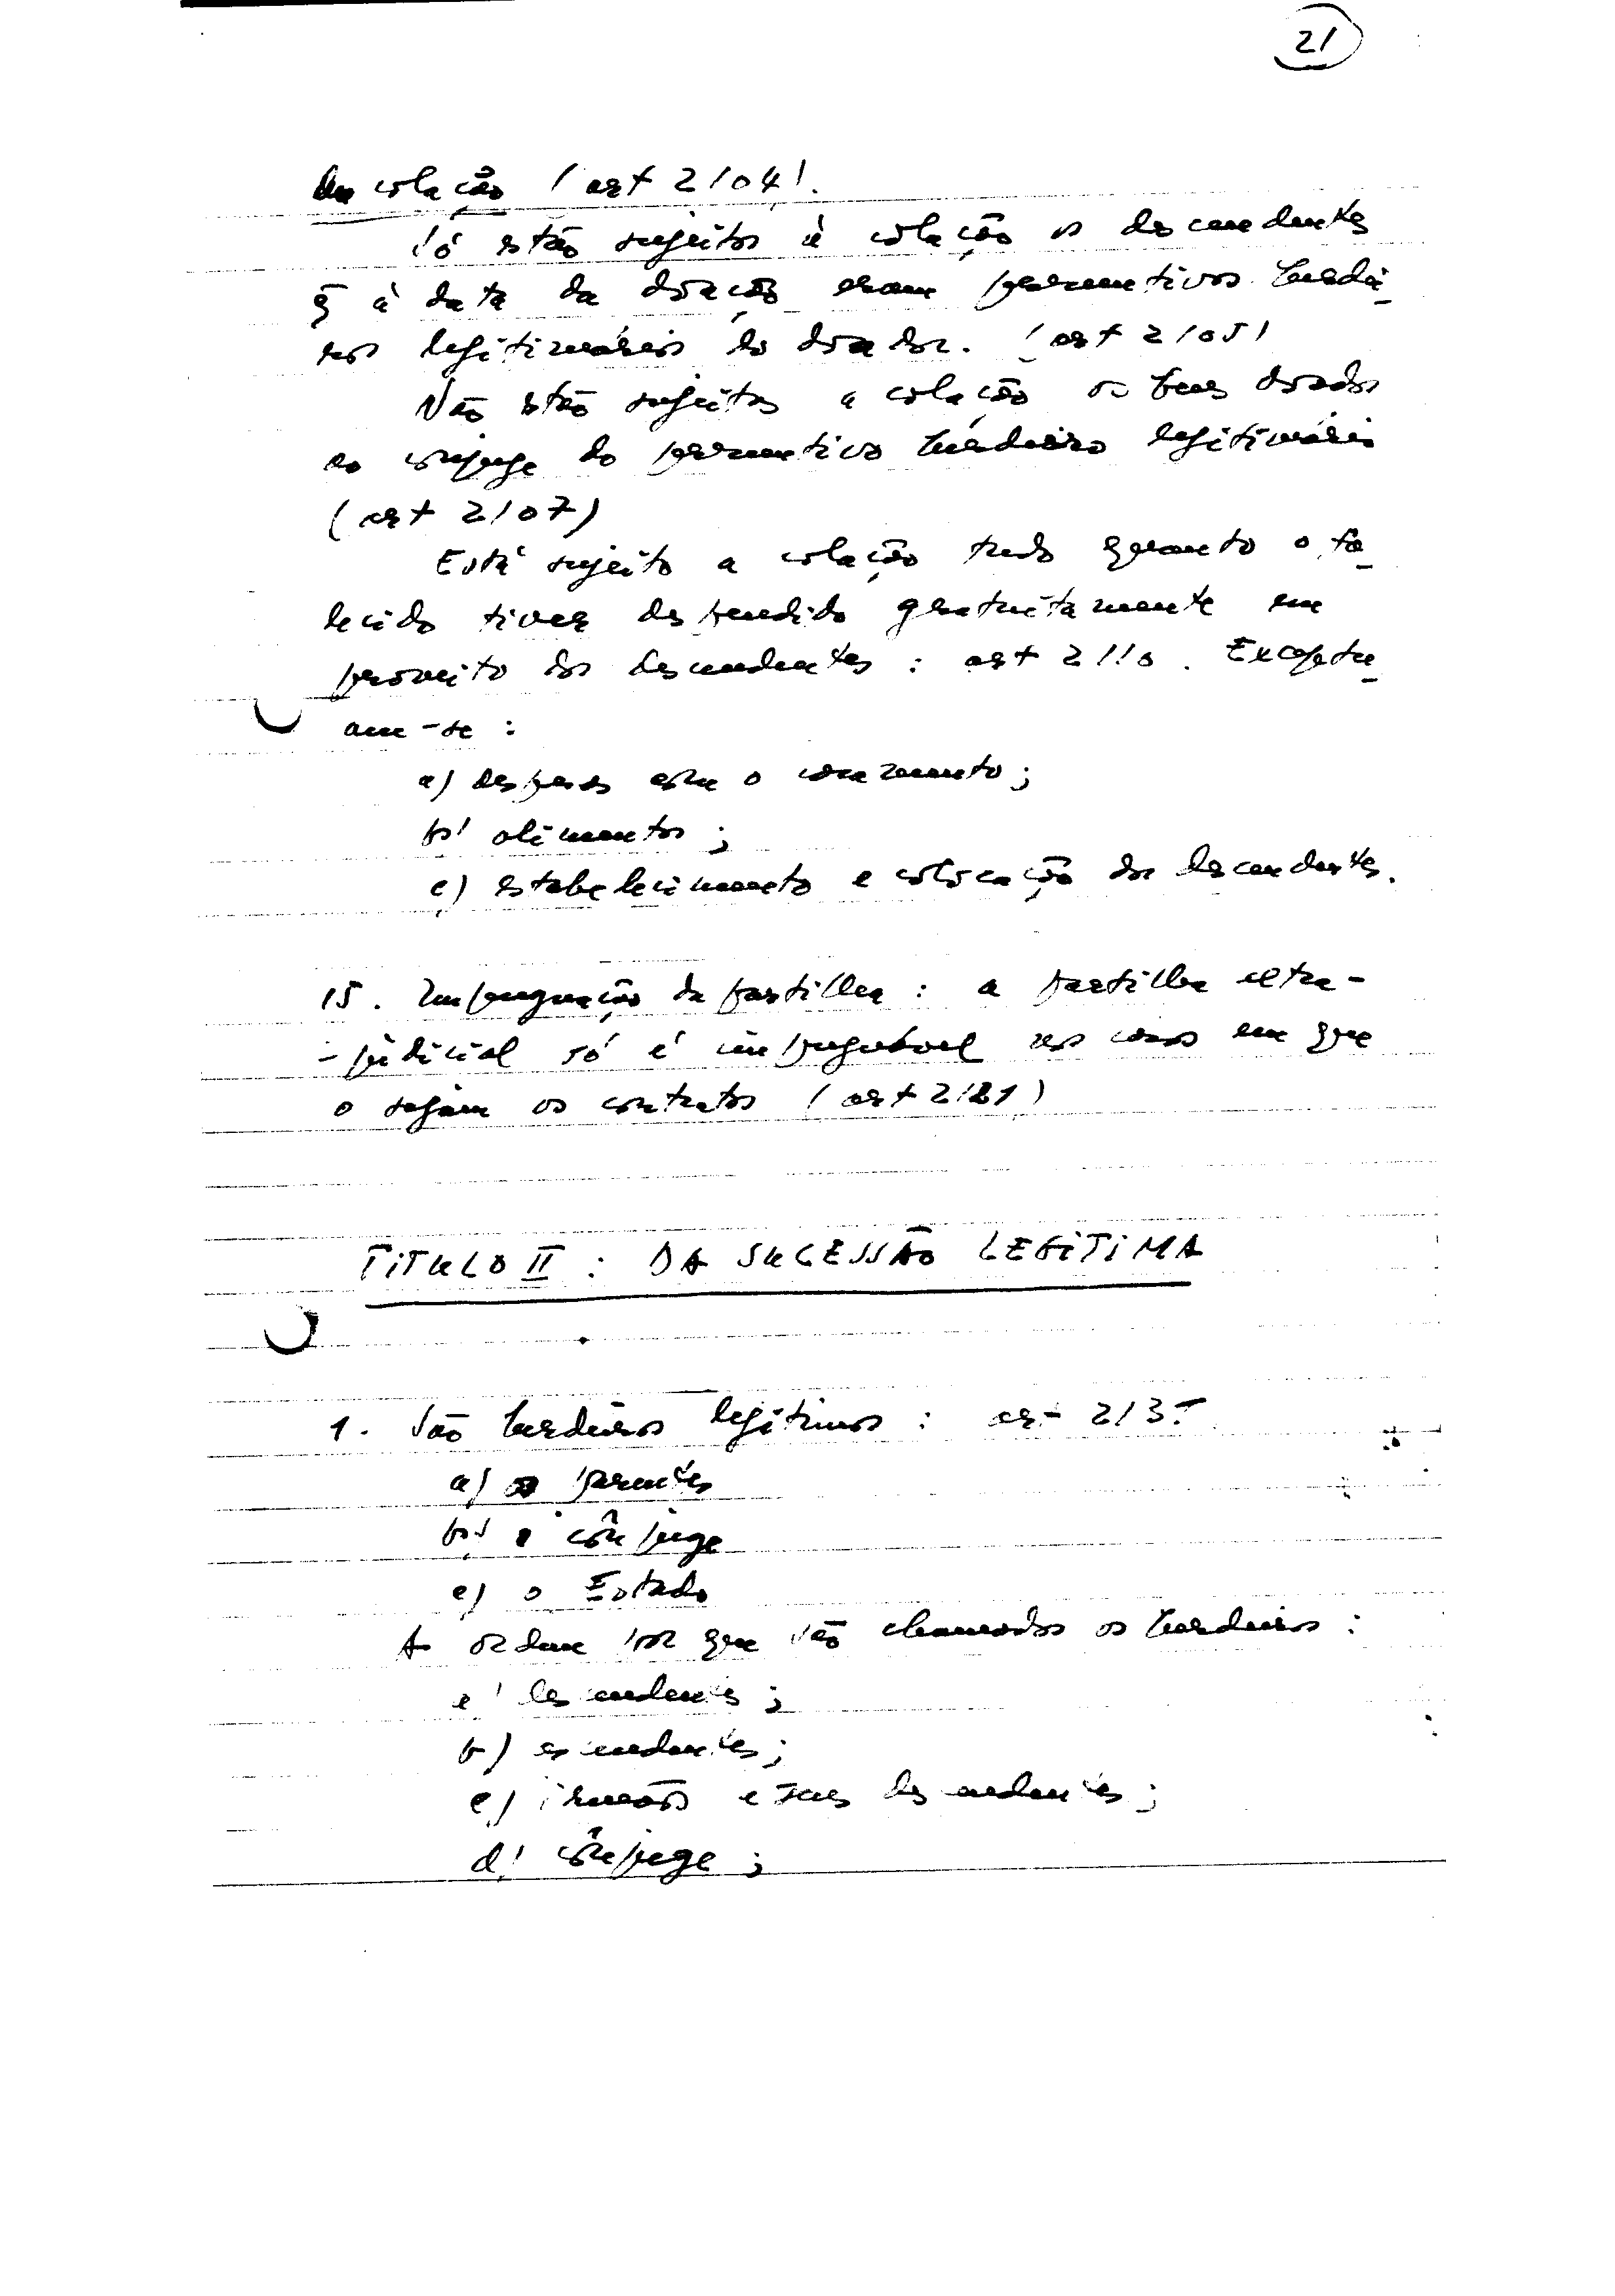 21
da colação (art 2104).
Só estão sujeitos à colação os descendentes
q̃ à data da doação eram presuntivos herdei-
ros legitimários do doador. (art 2105)
Não estão sujeitos a colação os bens doados
ao conjuge do presuntivo herdeiro legitimário
(art 2107)
Está sujeito a colação tudo quanto o fa-
lecido tiver despendido gratuitamente em
proveito dos descendentes : art 2110. Exceptu-
am-se :
a) despesas com o casamento;
b) alimentos ;
c) estabelecimento e colocação dos descendentes.
15. Impugnação da partilha : a partilha extra-
-judicial só é impugnável nos casos em que
o sejam os contratos (art 2121)
TITULO II : DA SUCESSÃO LEGITIMA
1. São herdeiros legítimos : art 2131
a) os parentes
b) o cônjuge
c) o Estado
A ordem por que são chamados os herdeiros :
a) descendentes ;
b) ascendentes;
c) irmãos e seus descendentes ;
d) cônjuge ;